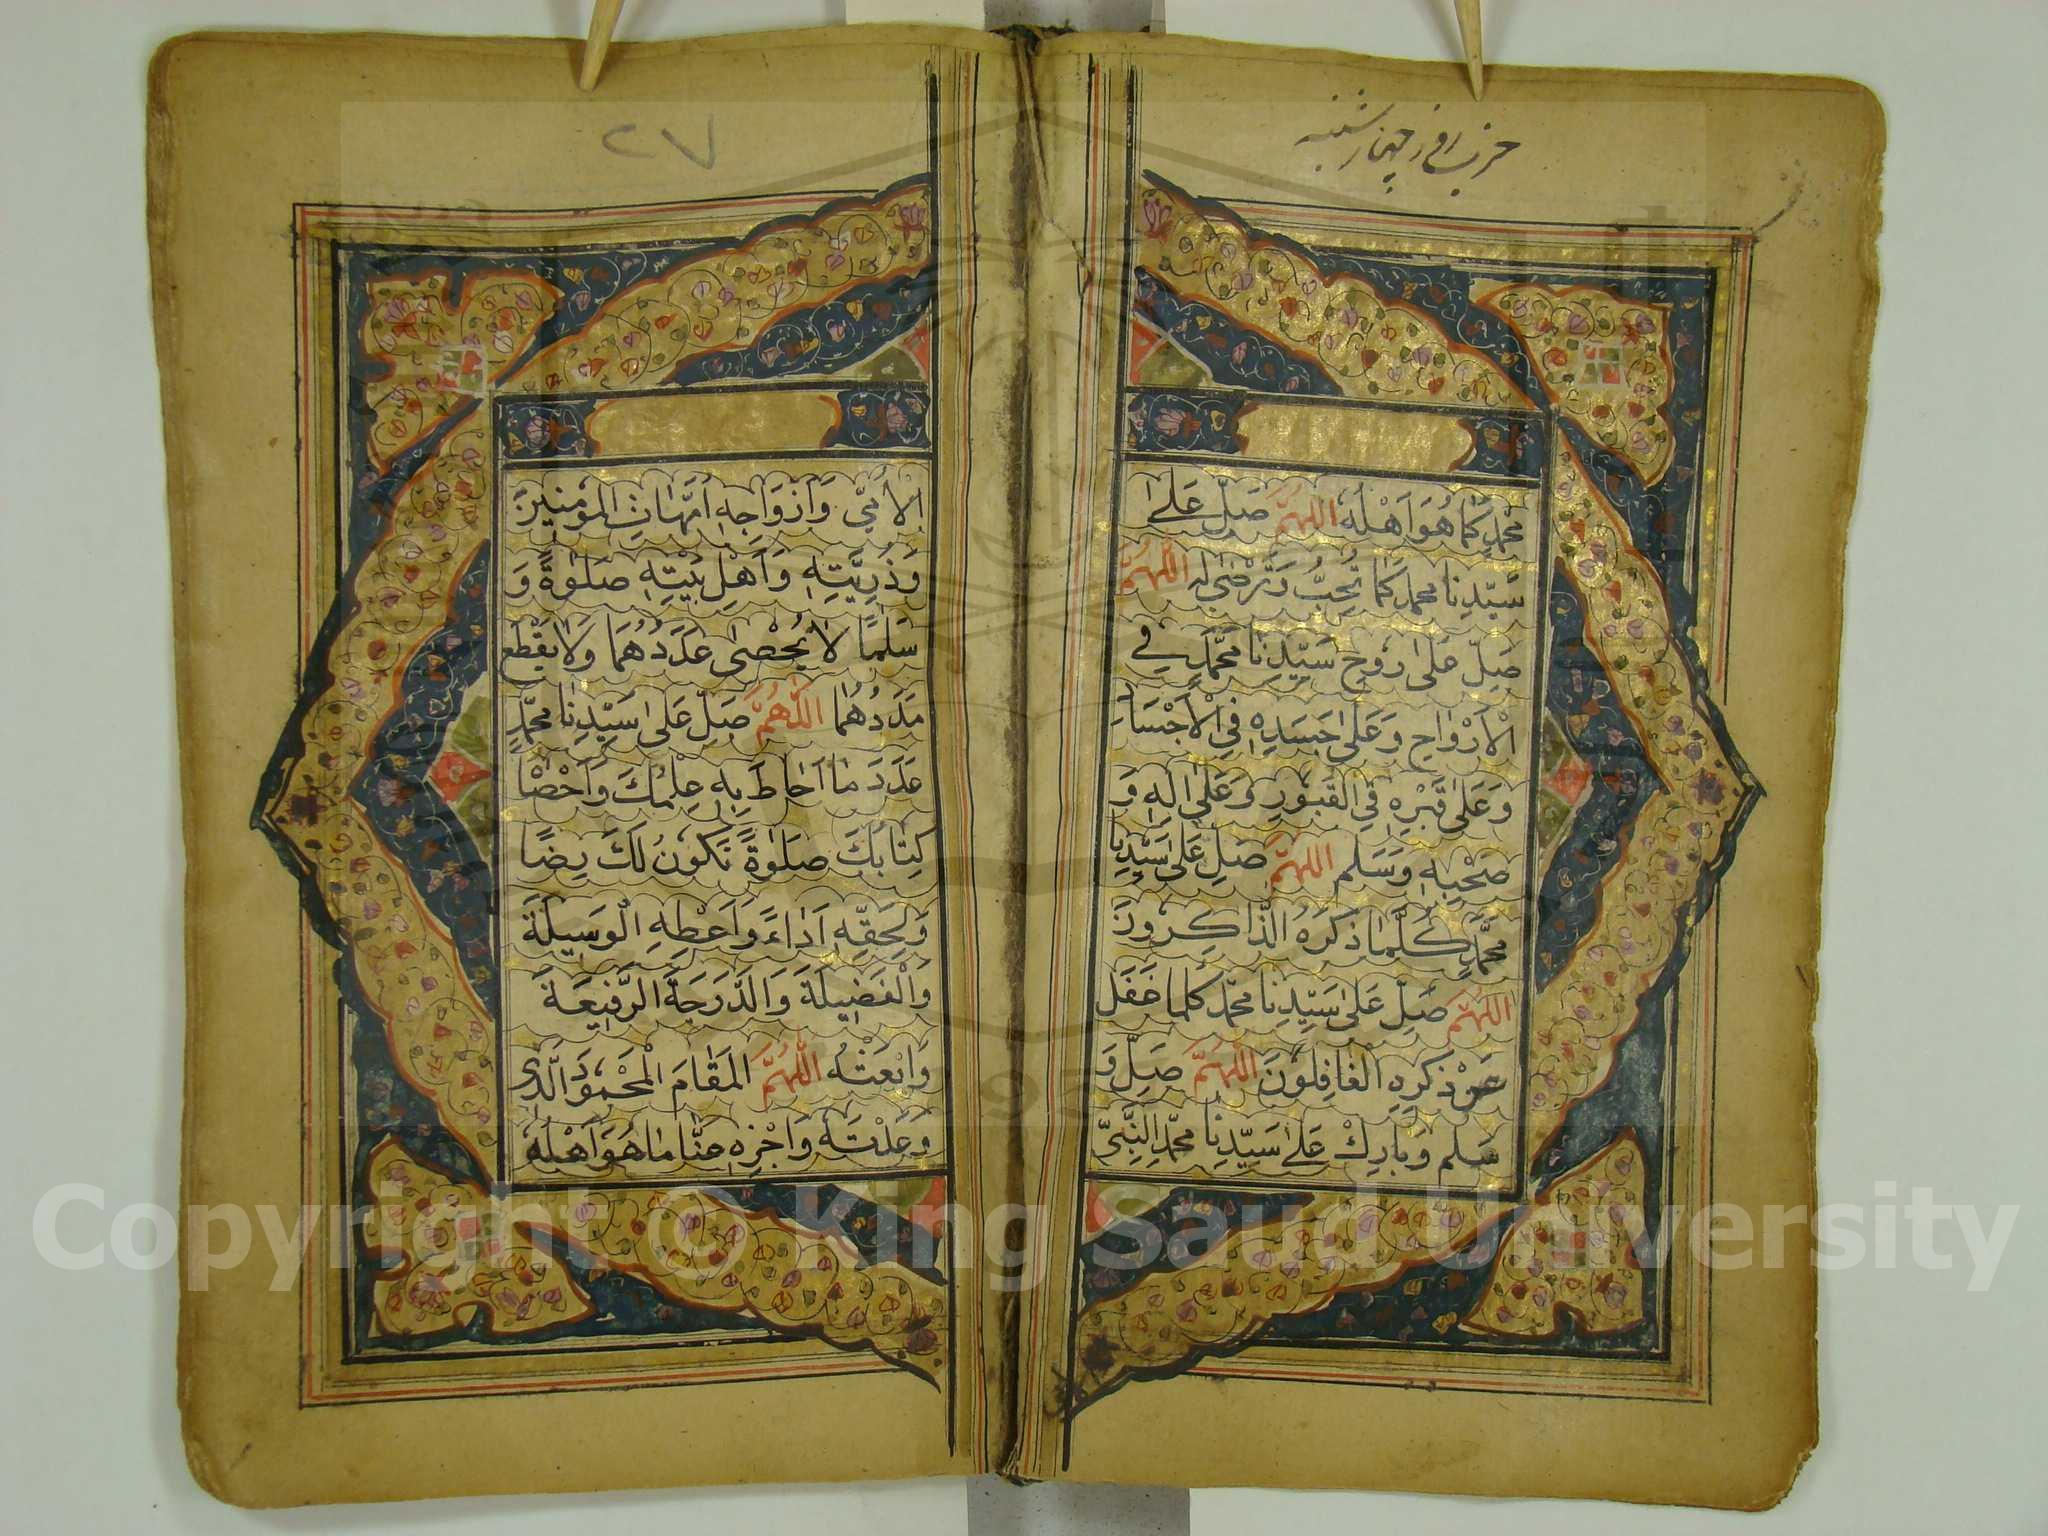 حزب روز چهار شنبه
محمد كما هو اهله اللهم صل على
سيدنا محمد كما تحب وترضى له اللهم
صل على روح سيدنا محمد في
الارواح وعلى جسده في الاجسا
وعلى قبره في القبور وعلى اله و
صحبه وسلم اللهم صل على سيدنا
محمد كلما ذكره الذاكرون
اللهم صل على سيدنا محمد كلما غفل
عن ذكره الغافلون اللهم صل و
سلم وبارك على سيدنا محمد النبي
٢٧
الامي وازواجه امهات المومنين
وذريته واهل بيته صلوة و
سلما لا يحصى عددهما ولا يقطع
مددهما اللهم صل على سيدنا محمد
عدد ما احاط به علمك واحصا
كتابك صلوة تكون لك رضا
ولحقه اداء واعطه الوسيلة
والفضيلة والدرجة الرفيعة
وابعثه اللهم المقام المحمود الذي
وعدته واجزه عنا ما هو اهله
Copyright © King Saud University